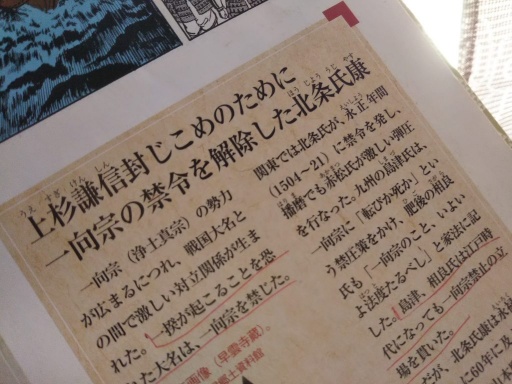 うえ すぎ けん しん
上杉謙信封じこめのために
ほう じょう うじ やす
一向宗の禁令を解除した北条氏康
一向宗（浄土真宗）の勢力
が広まるにつれ、戦国大名と
の間で激しい対立関係が生ま
れた。一揆が起こることを恐
れた大名は、一向宗を禁じた。
画像（早雲寺蔵）。
土資料館
関東では北条氏が、永正年間
（1504〜21）に禁令を発し、
播磨でも赤松氏が激しい弾圧
を行なった。九州の島津氏は、
一向宗に「転びか死か」とい
う禁圧策をかけ、肥後の相良
氏も「一向宗のこと、いよい
よ法度たるべし」と家法に記
した。島津、相良氏は江戸時
代になっても一向宗禁止の立
場を貫いた。
が、北条氏康は永
に60年に及